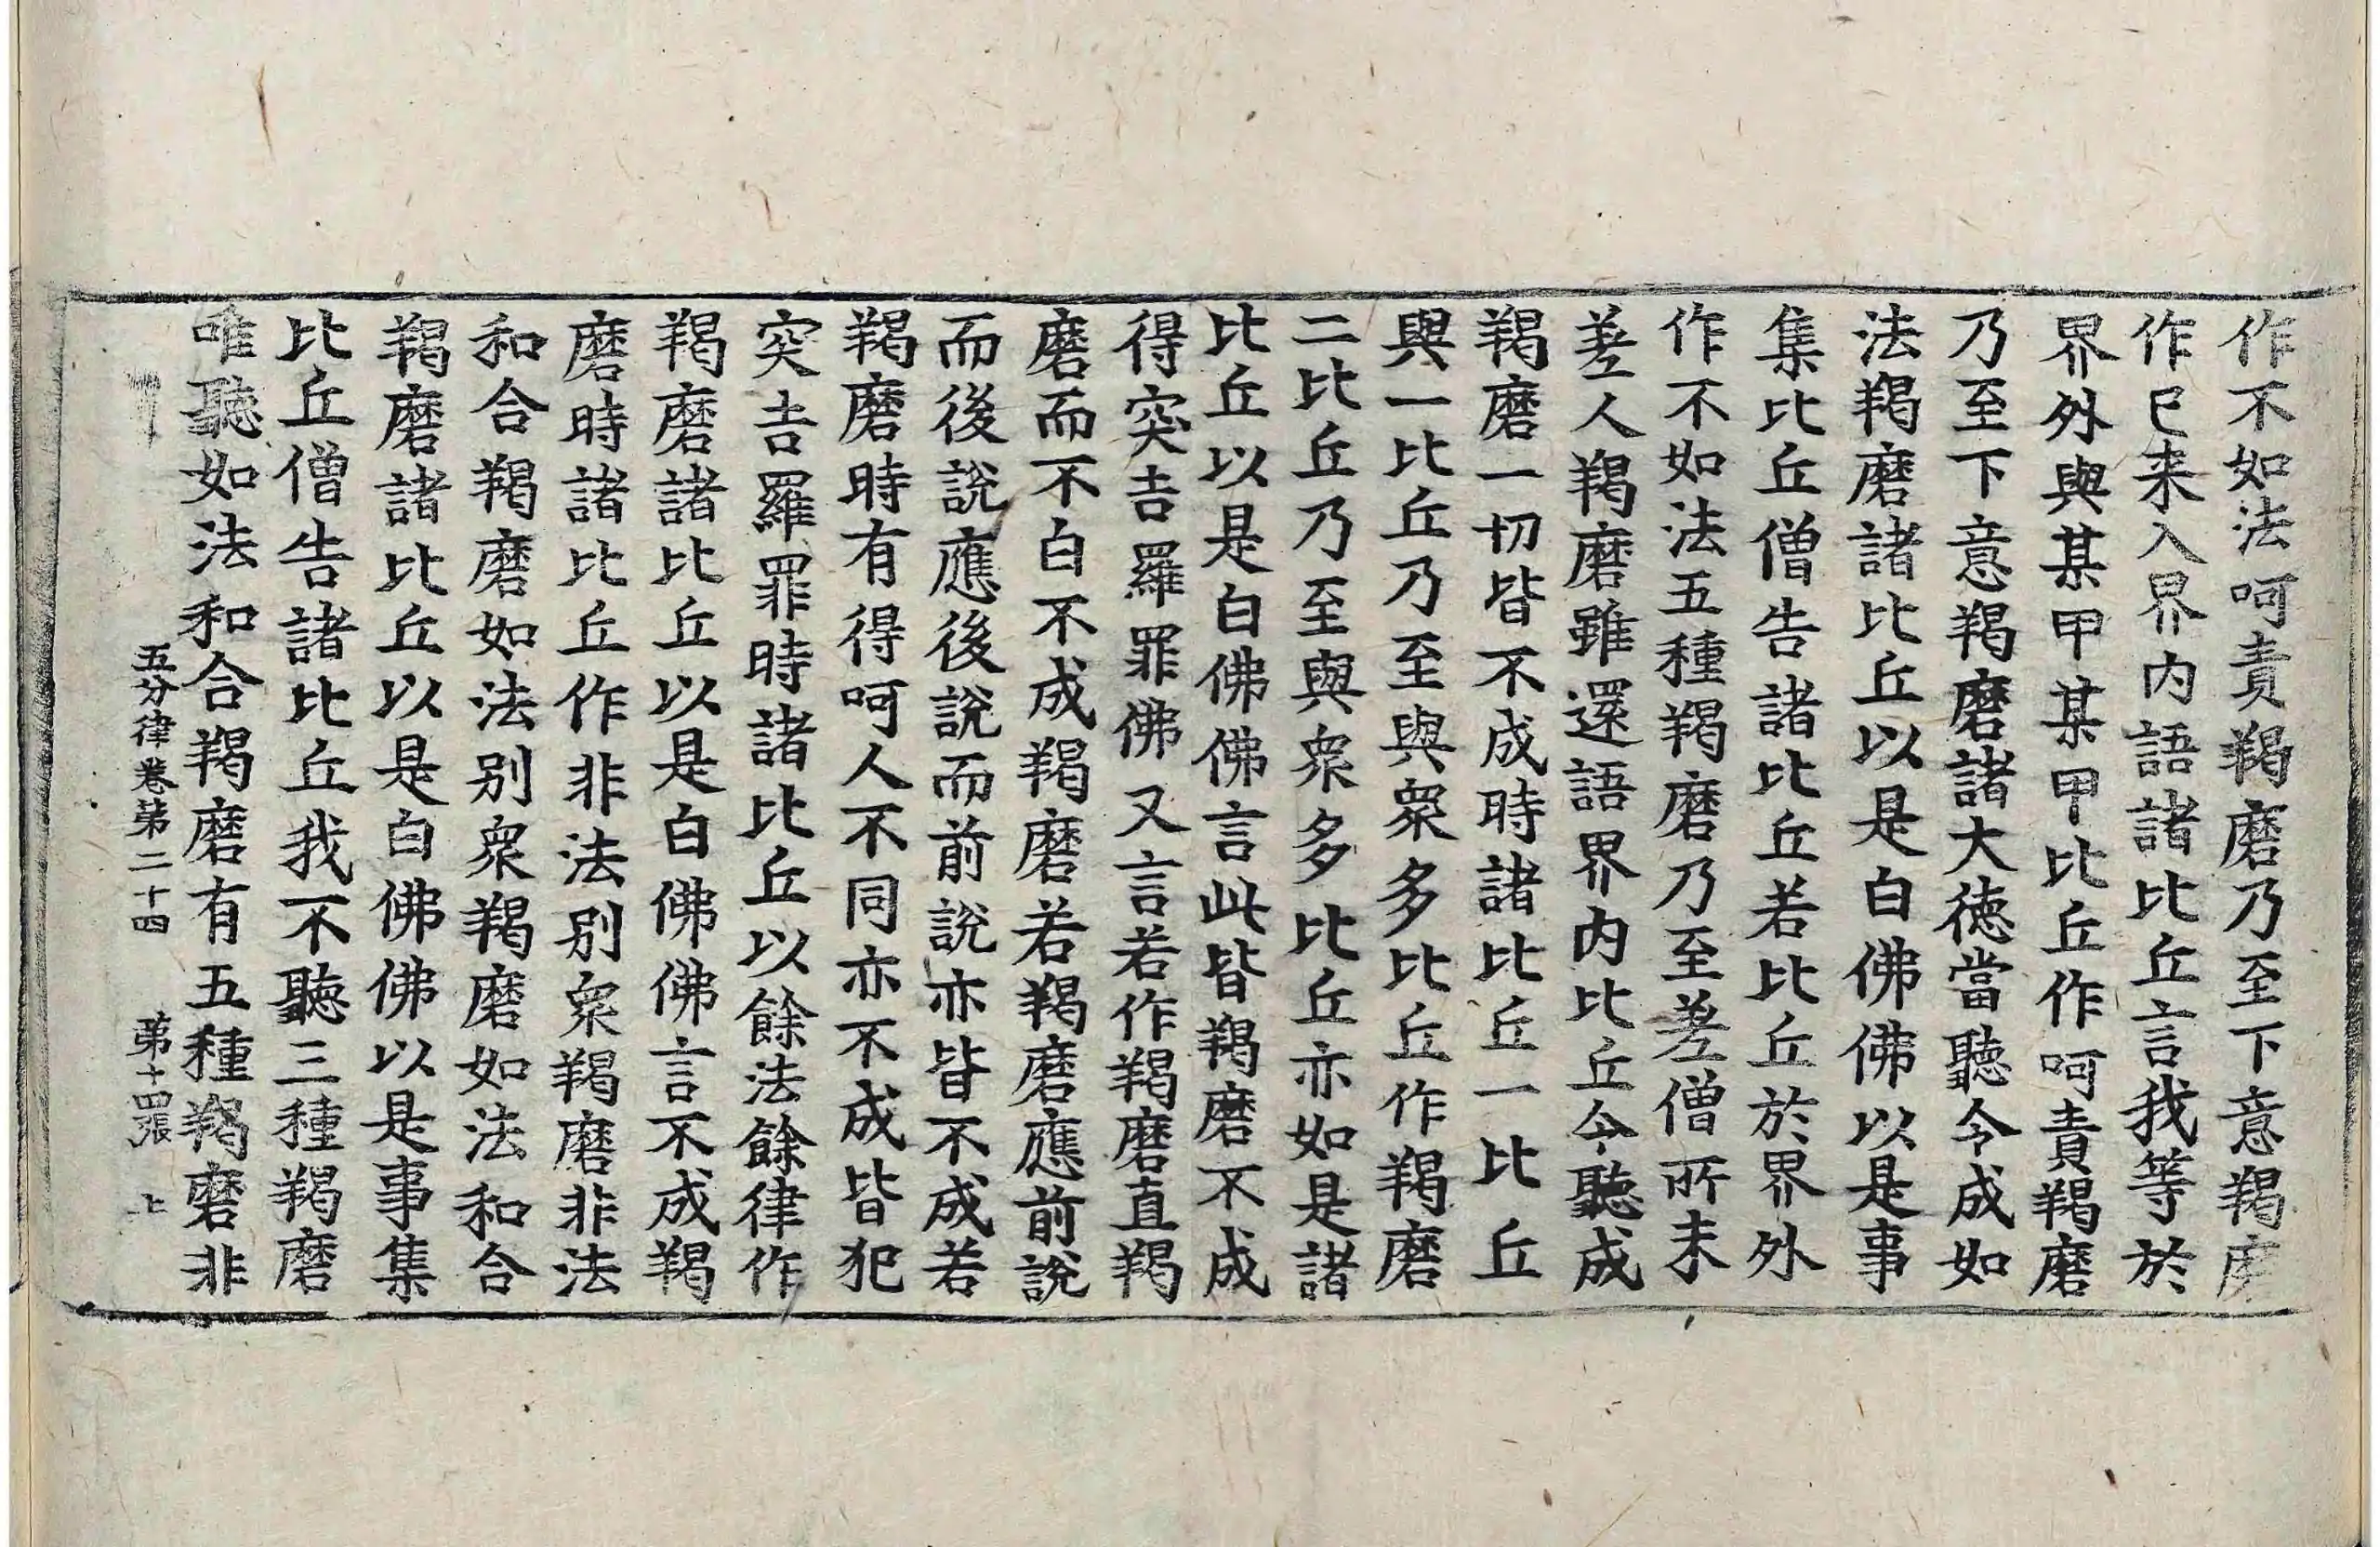 作不如法呵責羯磨乃至下意羯磨
作已来入界内語諸比丘言我等於
界外與某甲某甲比丘作呵責羯磨
乃至下意羯磨諸大德當聽令成如
法羯磨諸比丘以是白佛佛以是事
集比丘僧告諸比丘若比丘於界外
作不如法五種羯磨乃至差僧所未
差人羯磨雖還語界内比丘令聽成
羯磨一切皆不成時諸比丘一比丘
與一比丘乃至與衆多比丘作羯磨
二比丘乃至與衆多比丘亦如是諸
比丘以是白佛佛言此皆羯磨不成
得突吉羅罪佛又言若作羯磨直羯
磨而不白不成羯磨若羯磨應前說
而後說應後說而前說亦皆不成若
羯磨時有得呵人不同亦不成皆犯
突吉羅罪時諸比丘以餘法餘律作
羯磨諸比丘以是白佛佛言不成羯
磨時諸比丘作非法别衆羯磨非法
和合羯磨如法别衆羯磨如法和合
羯磨諸比丘以是白佛佛以是事集
比丘僧告諸比丘我不聽三種羯磨
唯聽如法和合羯磨有五種羯磨非
五分律卷第二十四 第十四張 上